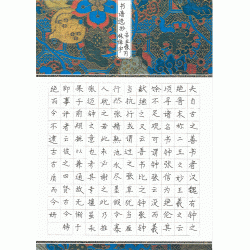 书谱选抄
夫自古之善书者汉魏有钟之
绝晋末称二王之妙王羲之云
顷寻诸名书钟张信为绝伦其
馀不足观可谓钟张云没而羲
献继之又云吾书比之钟张钟
当抗行或谓过之张草犹当雁
行然张精熟池水尽墨假令寡
人耽之若此未必谢之此乃推
张迈钟之意也考其专擅虽未
果于前规摭以兼通故无惭于
即事评者云彼之四贤古今特
绝而今不逮古古质而今妍